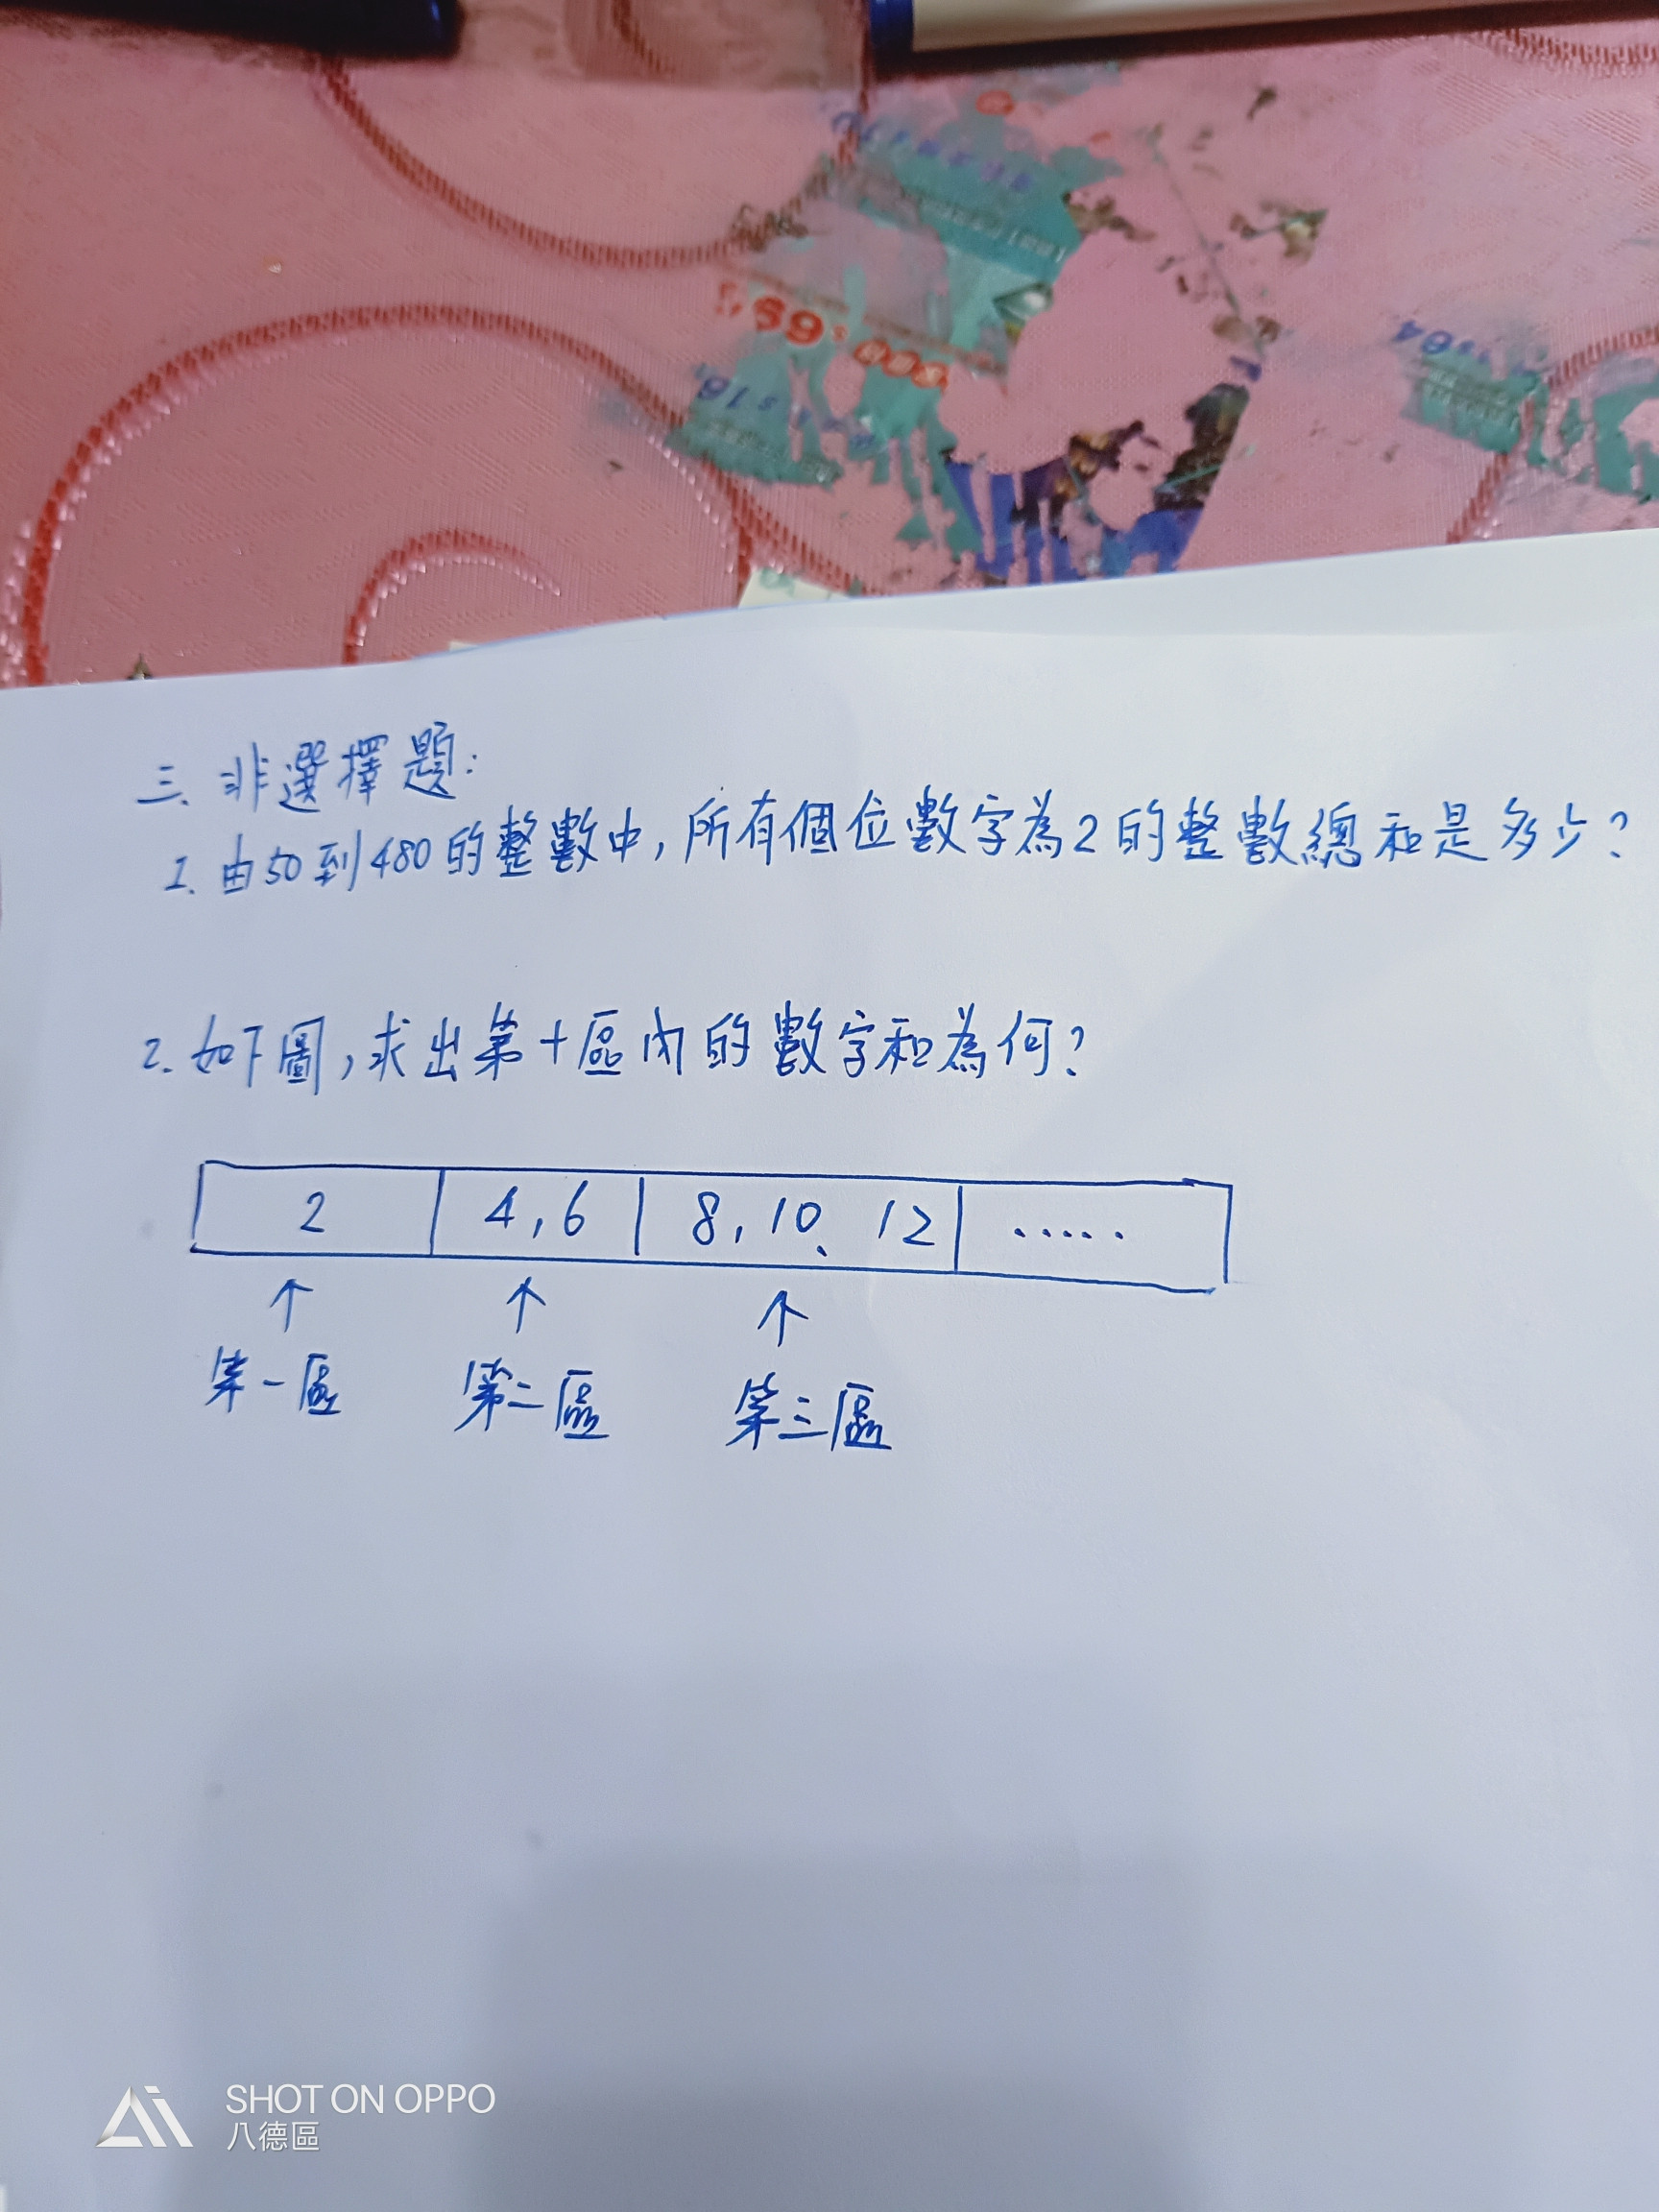 三、非選擇題:
1. 由50到480的整數中,所有個位數字為2的整數總和是多少?
2. 如下圖,求出第十區內的數字和為何?
2 4,6 8,10、12 ‧‧‧‧‧
↑ ↑ ↑
第一區 第二區 第三區
SHOT ON OPPO
八德區